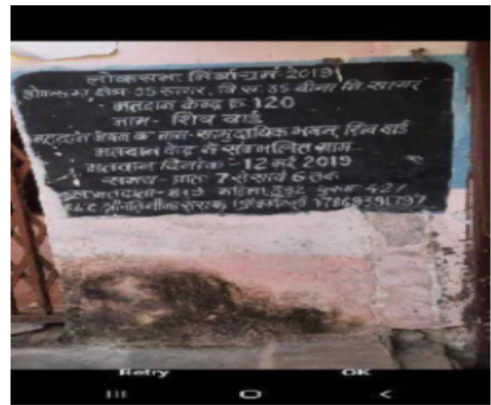 लोकसभा निर्वाचन-2019
लोकसभा क्षेत्र-05 सागर, वि.स. 35 बीना जि. सागर
मतदान केन्द्र क्र. 120
नाम- शिव वार्ड
मतदान भवन का नाम-सामुदायिक भवन, शिव वार्ड
मतदान केंद्र में सम्मलित ग्राम-
मतदान दिनांक-12 मई 2019
समय- प्रातः 7 से सायं 6 तक
कुल मतदाता-819 महिला 392 पुरुष 427
Retry OK